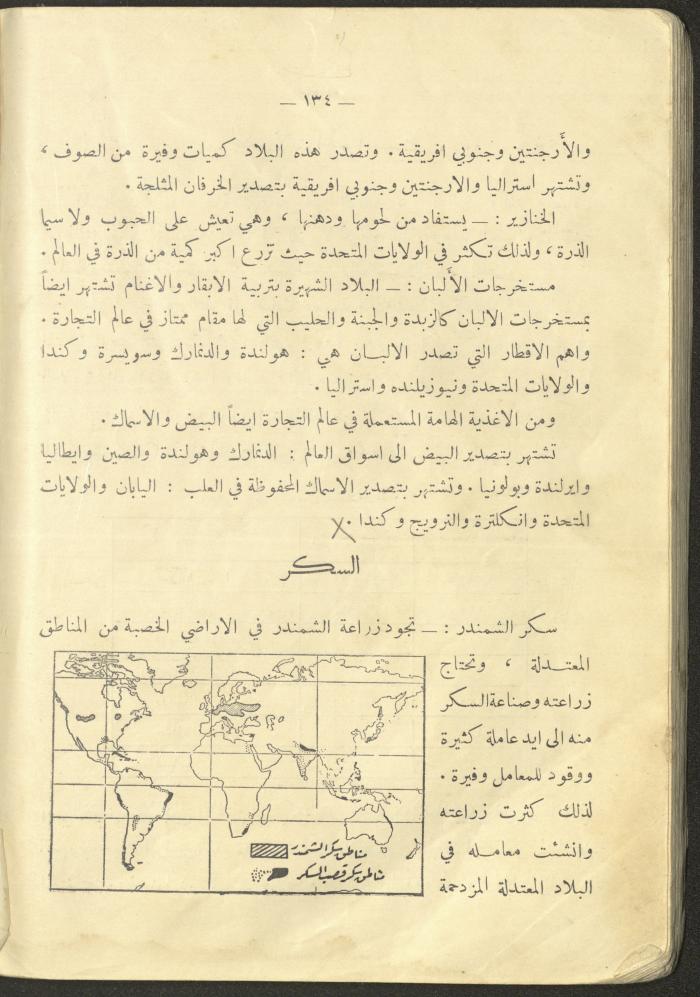 — ١٣٤ —
والأرجنتين وجنوبي افريقية . وتصدر هذه البلاد كميات وفيرة من الصوف ،
وتشتهر استراليا والارجنتين وجنوبي افريقية بتصدير الخرفان المثلجة .
الخنازير : — يستفاد من لحومها ودهنها ، وهي تعيش على الحبوب ولا سيما
الذرة ، ولذلك تكثر في الولايات المتحدة حيث تزرع اكبر كمية من الذرة في العالم .
مستخرجات الألبان : — البلاد الشهيرة بتربية الابقار والاغنام تشتهر ايضاً
بمستخرجات الالبان كالزبدة والجبنة والحليب التي لها مقام ممتاز في عالم التجارة .
واهم الاقطار التي تصدر الالبـان هي : هولندة والدنمارك وسويسرة وكندا
والولايات المتحدة ونيوزيلنده واستراليا .
ومن الاغذية الهامة المستعملة في عالم التجارة ايضاً البيض والاسماك .
تشتهر بتصدير البيض الى اسواق العالم : الدنمارك وهولندة والصين وايطاليا
وايرلندة وبولونيا . وتشتهر بتصدير الاسماك المحفوظة في العلب : اليابان والولايات
المتحدة وانكلترة والنرويج وكندا .
السكر
سكر الشمندر : — تجود زراعة الشمندر في الاراضي الخصبة من المناطق
المعتـدلة ، وتحتاج
زراعته وصناعة السكر
منه الى ايد عاملة كثيرة
ووقود للمعامل وفيرة .
لذلك كثرت زراعته
وانشئت معامـله في
البلاد المعتدلة المزدحمة
مناطق سكر الشمندر
مناطق سكر قصب السكر